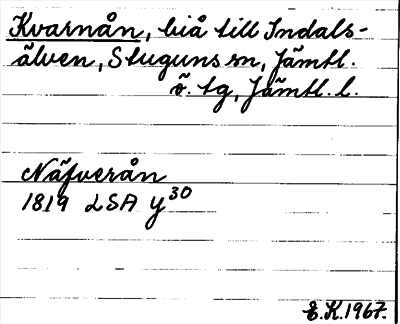 Kvarnån, biå till Indals-
älven, Stuguns sn, Jämtl.
ö. tg, Jämtl. l.
Näfverån
1819 LSA y³⁰
E.K.1967.